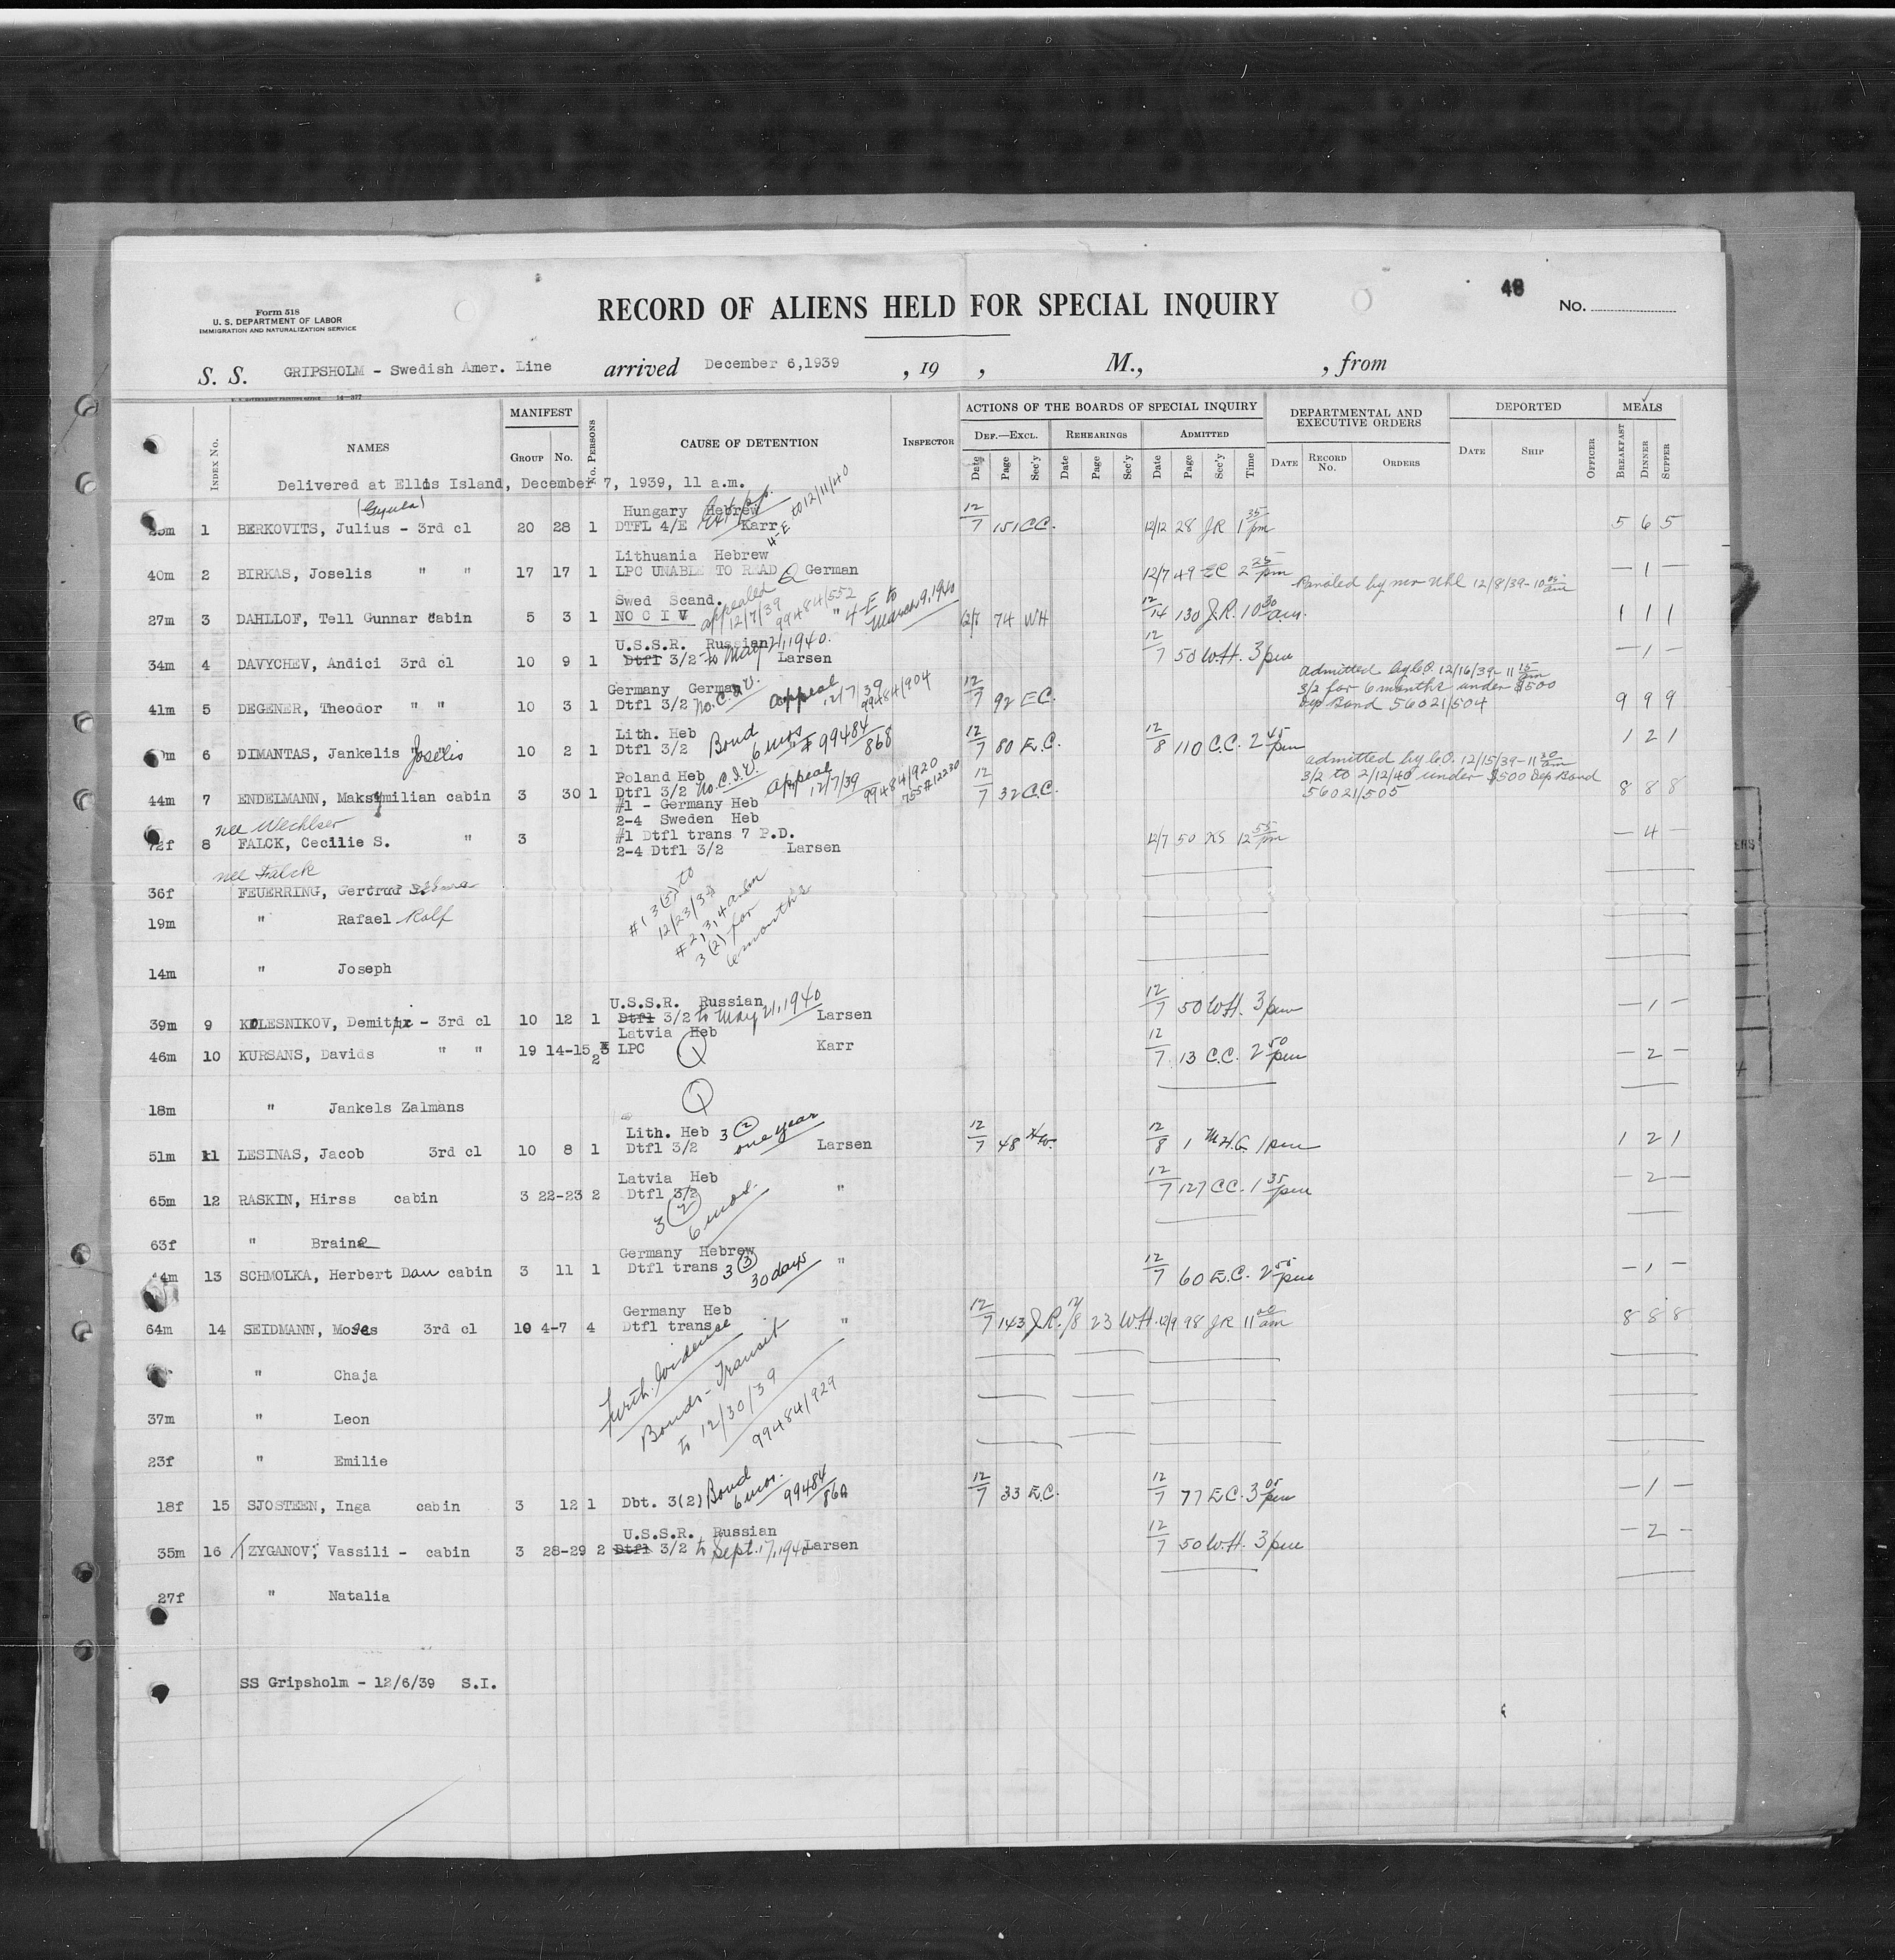 Form 518
U. S. DEPARTMENT OF LABOR
IMMIGRATION AND NATURALIZATION SERVICE
RECORD OF ALIENS HELD FOR SPECIAL INQUIRY
48
No.
S. S. GRIPSHOLM - Swedish Amer. Line arrived December 6,1939 , 19 , M., , from
14-377
INDEX No. NAMES MANIFEST GROUP No. No. PERSONS CAUSE OF DETENTION INSPECTOR
ACTIONS OF THE BOARDS OF SPECIAL INQUIRY DEF.—EXCL. Date Page Sec'y REHEARINGS Date Page Sec'y ADMITTED Date Page Sec'y Time
DEPARTMENTAL AND EXECUTIVE ORDERS DATE RECORD No. ORDERS DEPORTED DATE SHIP OFFICER MEALS BREAKFAST DINNER SUPPER
Delivered at Ellis Island, December 7, 1939, 11 a.m.
(Gyula) Hungary Hebrew
1 BERKOVITS, Julius - 3rd cl 20 28 1 DTFL 4/E Karr 4-E to 12/11/40 12/7 151 C.C. 12/12 28 JR 1 35 pm 5 6 5
Lithuania Hebrew
40m 2 BIRKAS, Joselis " " 17 17 1 LPC UNABLE TO READ German 12/7 49 EC 2 25 pm — 1 —
Paroled by Mr Uhl 12/8/39 - 10 05 am
Swed Scand. appealed 12/7/39 99484/552
27m 3 DAHLLOF, Tell Gunnar cabin 5 3 1 NO C I V " 4-E to March 9, 1940 12/7 74 WH 12/14 130 J.R. 10 30 am. 1 1 1
U.S.S.R. Russian
34m 4 DAVYCHEV, Andici 3rd cl 10 9 1 Dtfl 3/2 to May 21, 1940. Larsen 12/7 50 W.H. 3 pm — 1 —
Germany German
41m 5 DEGENER, Theodor " " 10 3 1 Dtfl 3/2 No. C.I.V. appeal 12/7/39 99484/904 12/7 92 E.C. 9 9 9
admitted by C.O. 12/16/39 - 11 15 am
3/2 for 6 months under $500
Dep Bond 56021/504
Lith. Heb
6 DIMANTAS, Jankelis Joselis " " 10 2 1 Dtfl 3/2 Bond 6 mos 99484/868 12/7 80 E.C. 12/8 110 C.C. 2 45 pm 1 2 1
Poland Heb
44m 7 ENDELMANN, Maksymilian cabin 3 30 1 Dtfl 3/2 No. C.I.V. Appeal 12/7/39 99484/920 12/7 32 C.C. 8 8 8
admitted by C.O. 12/15/39 - 11 30 am
3/2 to 2/12/40 under $500 Dep Bond
56021/505
#1 - Germany Heb
2-4 Sweden Heb
nee Wechlser #1 Dtfl trans 7 P.D.
72f 8 FALCK, Cecilie S. " 3 2-4 Dtfl 3/2 Larsen 12/7 50 KS 12 55 pm — 4 —
nee Falck
36f FEUERRING, Gertrud
19m " Rafael Rolf
#1 3(3) to
12/23/39
#2,3,4 adm
3(2) for
6 months
14m " Joseph
U.S.S.R. Russian
39m 9 KOLESNIKOV, Demitri - 3rd cl 10 12 1 Dtfl 3/2 to May 21, 1940 Larsen 12/7 50 W.H. 3 pm — 1 —
Latvia Heb
46m 10 KURSANS, Davids " " 19 14-15 2 LPC Karr 12/7 13 C.C. 2 50 pm — 2 —
18m " Jankels Zalmans
Lith. Heb 3 (2) one year
51m 11 LESINAS, Jacob 3rd cl 10 8 1 Dtfl 3/2 Larsen 12/7 48 12/8 1 M.H.G. 1 pm 1 2 1
Latvia Heb
65m 12 RASKIN, Hirss cabin 3 22-23 2 Dtfl 3/2 " 12/7 127 C.C. 1 35 pm — 2 —
3 (2) 6 mos.
63f " Braine
Germany Hebrew
13 SCHMOLKA, Herbert Dan cabin 3 11 1 Dtfl trans 3 (3) 30 days " 12/7 60 E.C. 2 55 pm — 1 —
Germany Heb
64m 14 SEIDMANN, Moses 3rd cl 10 4-7 4 Dtfl trans " 12/7 143 J.R. 12/8 23 W.H. 12/9 98 JR 11 00 am 8 8 8
Bonds - Transit
to 12/30/39
99484/929
" Chaja
37m " Leon
23f " Emilie
18f 15 SJOSTEEN, Inga cabin 3 12 1 Dbt. 3(2) Bond 6 mos. 12/7 33 E.C. 12/7 77 E.C. 3 05 pm — 1 —
U.S.S.R. Russian
35m 16 TZYGANOV, Vassili - cabin 3 28-29 2 Dtfl 3/2 to Sept. 17, 1940 Larsen 12/7 50 W.H. 3 pm — 2 —
27f " Natalia
SS Gripsholm - 12/6/39 S.I.